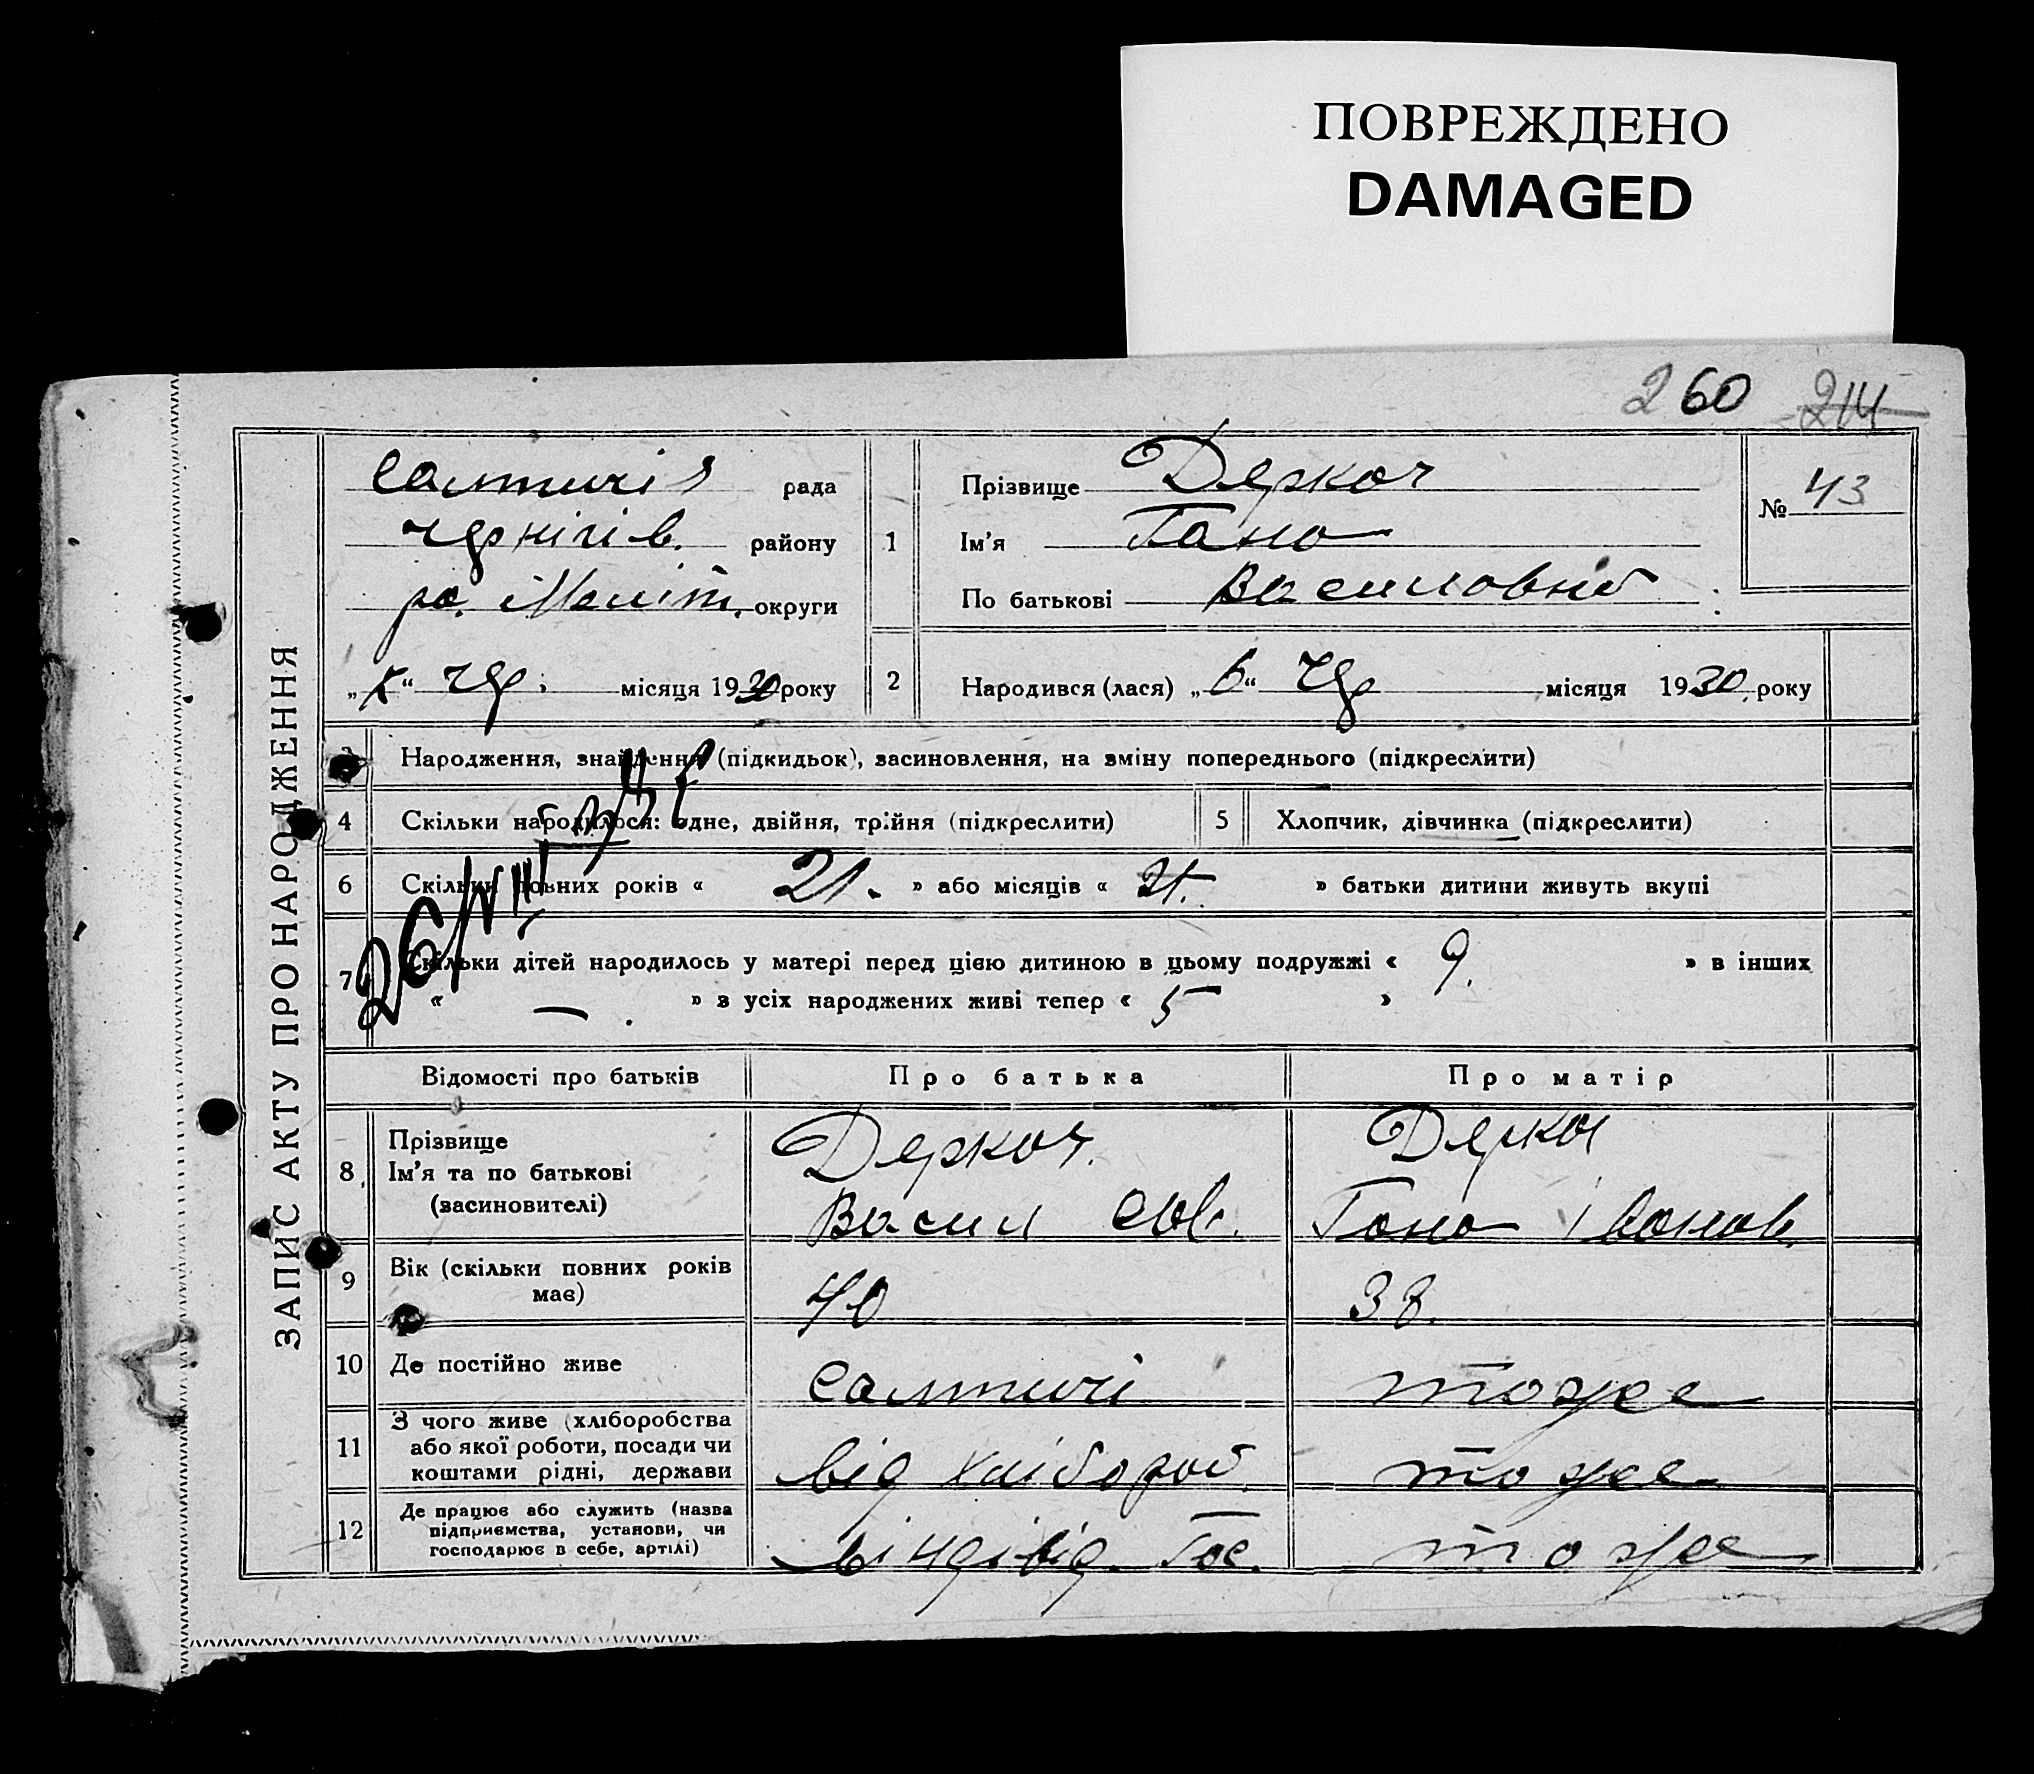 ПОВРЕЖДЕНО
DAMAGED
260 214
ЗАПИС АКТУ ПРО НАРОДЖЕННЯ
Салтичія рада
Чернігів. району
Меліт. округи
" " чер. місяця 1930 року
1
Прізвище Деркач
Ім'я Гана
По батькові Василовна
№ 43
2
Народився (лася) „6“ Чер місяця 1930 року
3 Народження, знайдення (підкидьок), засиновлення, на зміну попереднього (підкреслити)
4 Скільки народилося: одне, двійня, трійня (підкреслити)
5 Хлопчик, дівчинка (підкреслити)
6 Скільки повних років « 21. » або місяців « » батьки дитини живуть вкупі
7 Скільки дітей народилось у матері перед цією дитиною в цьому подружжі « 9. » в інших
« — » з усіх народжених живі тепер « 5 »
Відомості про батьків Про батька Про матір
8 Прізвище
Ім'я та по батькові
(засиновителі)
Деркач.
Васил
Деркач
Гана Іванов.
9 Вік (скільки повних років
має)
40 38.
10 Де постійно живе Салтичі тоже
11 З чого живе (хліборобства
або якої роботи, посади чи
коштами рідні, держави
від хлібороб. тоже
12 Де працює або служить (назва
підприємства, установи, чи
господарює в себе, артілі)
індівід. Гос. тоже